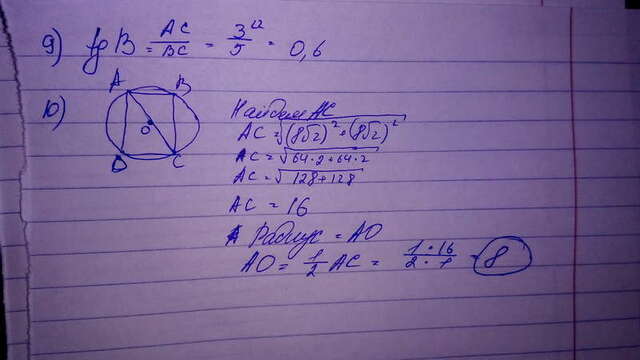 9) tg B = AC/BC = 3/5 = 0,6
10)
A B
O
D C
Найдем AC
AC = √(8√2)² + (8√2)²
AC = √64·2+64·2
AC = √128+128
AC = 16
Радиус = AO
AO = 1/2 AC = 1·16/2·1 = 8